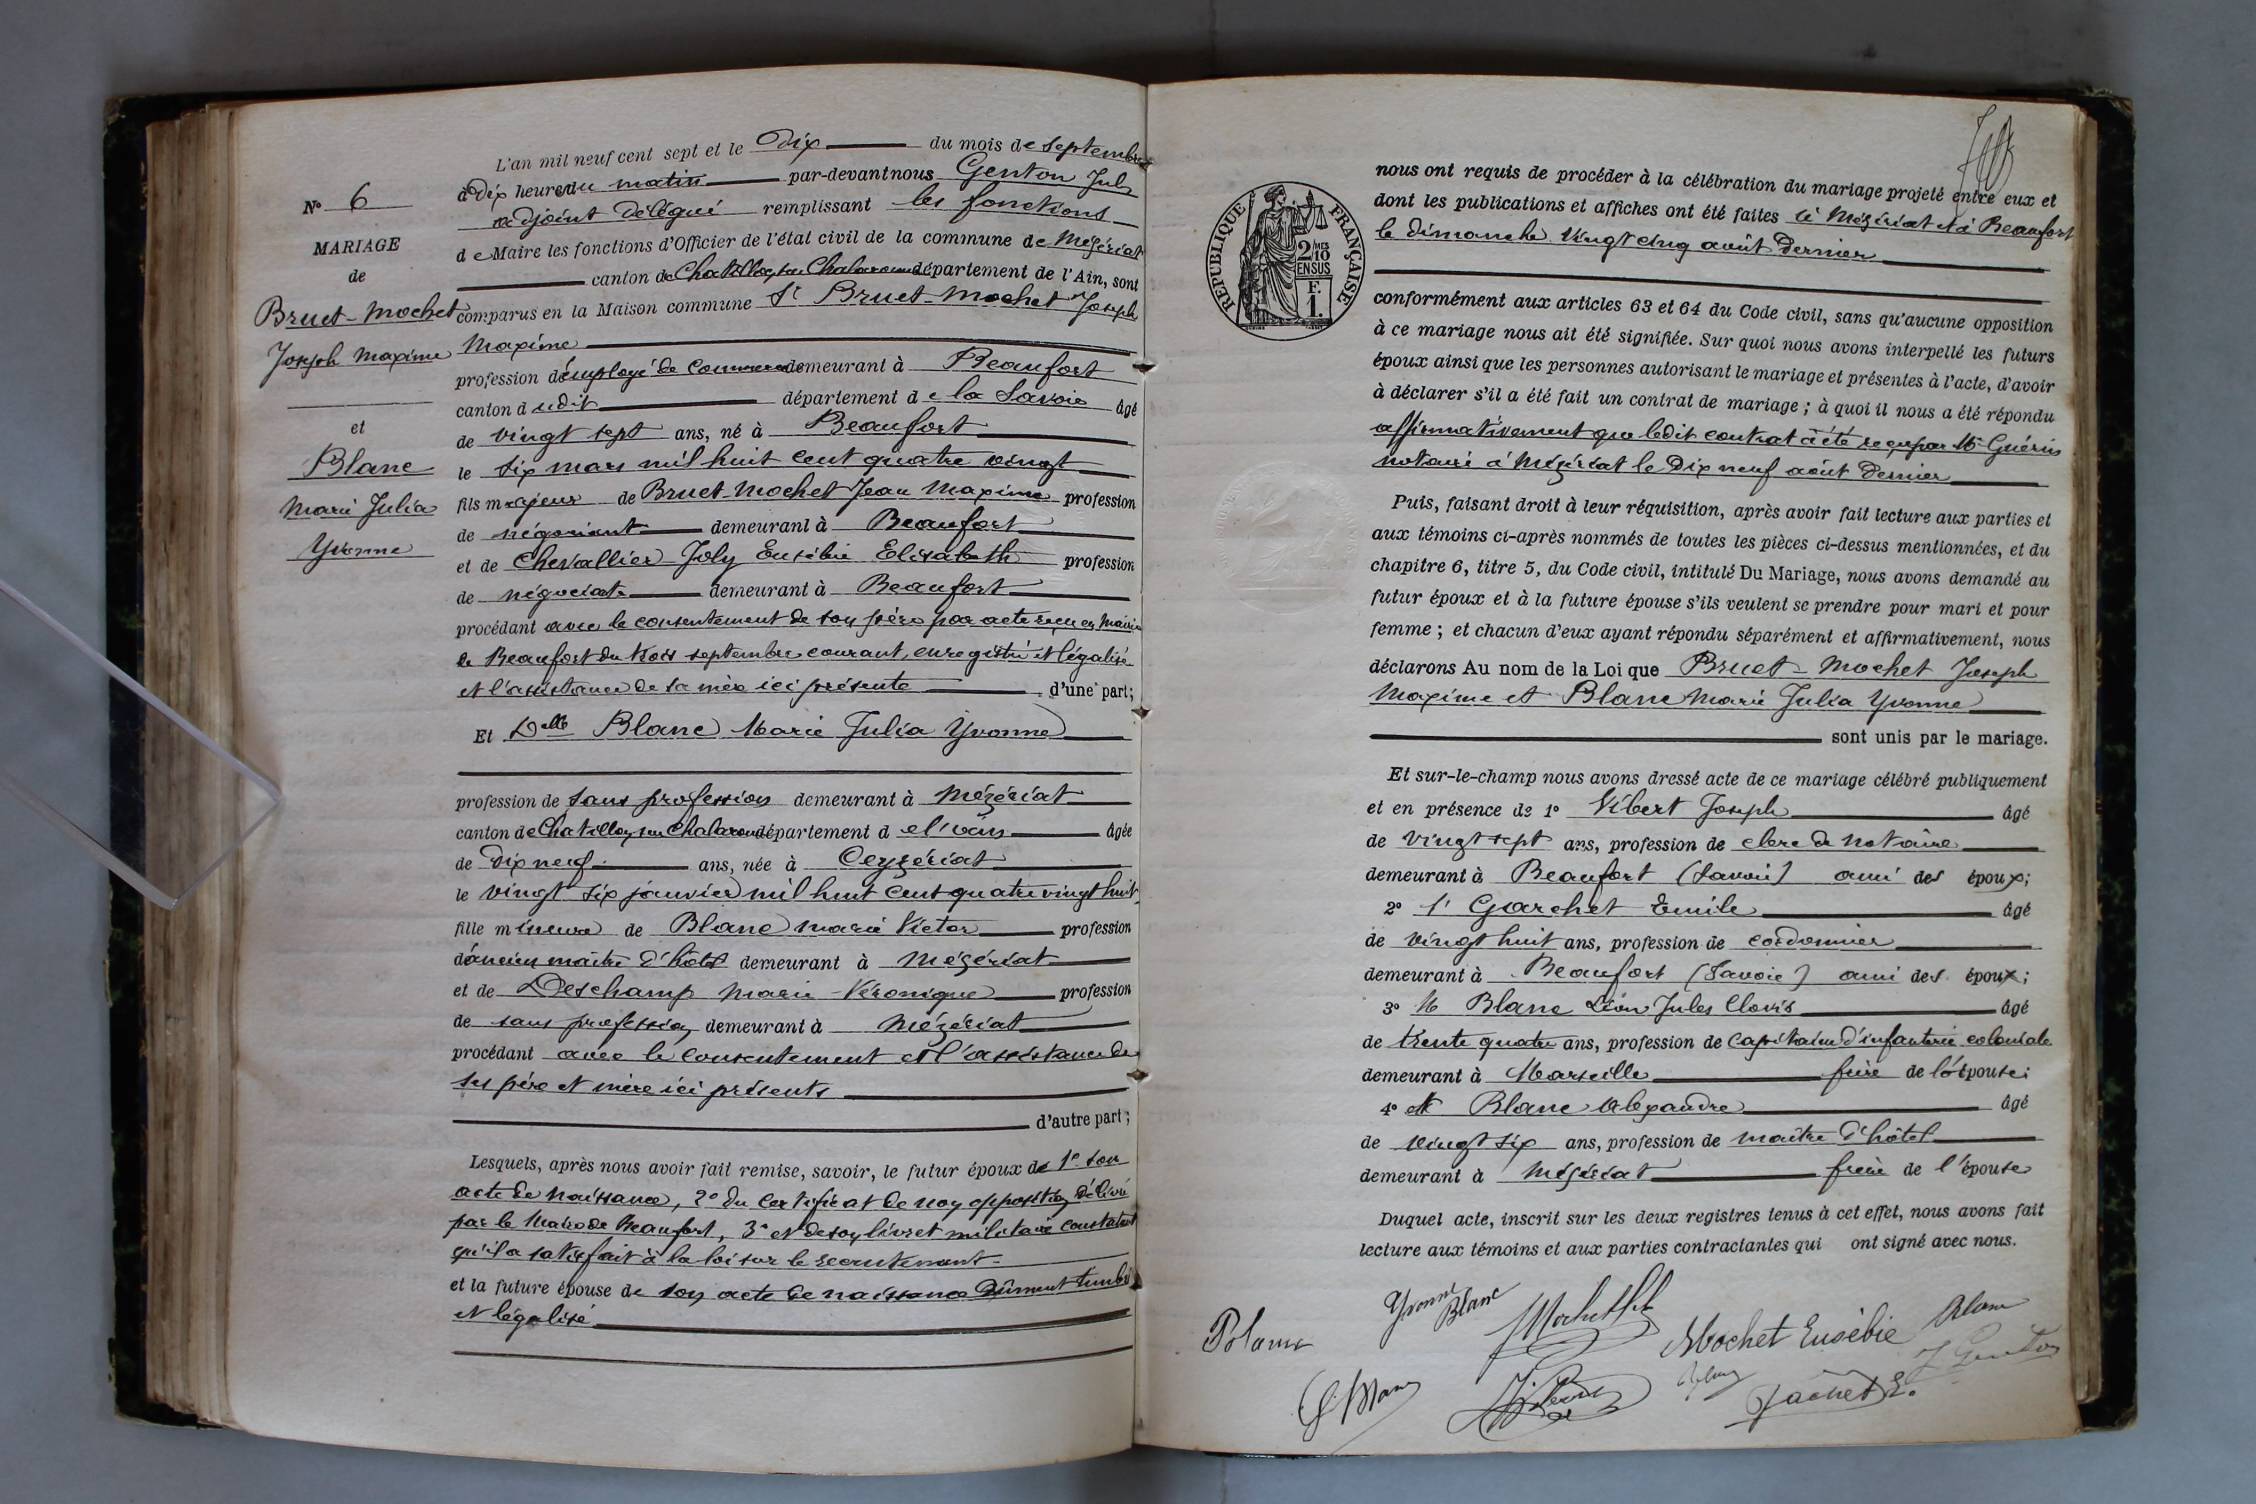 N° 6
MARIAGE
de
Bruet-Mochet
Joseph Maxime
et
Blanc
Marie Julia
Yvonne
L'an mil neuf cent sept et le Dix du mois de septembre
à Dix heures du matin par-devant nous Genton Jules
adjoint Délégué remplissant les fonctions
de Maire les fonctions d'Officier de l'état civil de la commune de Mézériat
canton de Chatillon sur Chalaronne département de l'Ain, sont
comparus en la Maison commune Sr Bruet-Mochet Joseph
Maxime
profession d'employé de Commerce demeurant à Beaufort
canton dudit département de la Savoie âgé
de vingt sept ans, né à Beaufort
le six mars mil huit cent quatre vingt
fils majeur de Bruet-Mochet Jean Maxime profession
de négociant demeurant à Beaufort
et de Chevallier-Joly Eusébie Elisabeth profession
de négociate demeurant à Beaufort
procédant avec le consentement de son père par acte reçu en Mairie
de Beaufort du trois septembre courant, enregistré et légalisé
et l'assistance de sa mère ici présente d'une part;
Et Delle Blanc Marie Julia Yvonne
profession de sans profession demeurant à Mézériat
canton de Chatillon sur Chalaronne département de l'ain âgée
de Dix neuf ans, née à Ceyzériat
le vingt six janvier mil huit cent quatre vingt huit
fille mineure de Blanc Marie Victor profession
d'ancien maître d'hôtel demeurant à Mézériat
et de Deschamp Marie-Véronique profession
de sans profession demeurant à Mézériat
procédant avec le consentement et l'assistance de
ses père et mère ici présents
d'autre part;
Lesquels, après nous avoir fait remise, savoir, le futur époux de 1° son
acte de naissance, 2° du certificat de non opposition délivré
par le Maire de Beaufort, 3° et de son livret militaire constatant
qu'il a satisfait à la loi sur le recrutement
et la future épouse de son acte de naissance Dûment timbré
et légalisé
RÉPUBLIQUE FRANÇAISE
2 MES
10
EN SUS
F.
1.
nous ont requis de procéder à la célébration du mariage projeté entre eux et
dont les publications et affiches ont été faites à Mézériat et à Beaufort
le dimanche vingt cinq août Dernier
conformément aux articles 63 et 64 du Code civil, sans qu'aucune opposition
à ce mariage nous ait été signifiée. Sur quoi nous avons interpellé les futurs
époux ainsi que les personnes autorisant le mariage et présentes à l'acte, d'avoir
à déclarer s'il a été fait un contrat de mariage; à quoi il nous a été répondu
affirmativement que ledit contrat a été reçu par Me Guérin
notaire à Mézériat le Dix neuf août Dernier
Puis, faisant droit à leur réquisition, après avoir fait lecture aux parties et
aux témoins ci-après nommés de toutes les pièces ci-dessus mentionnées, et du
chapitre 6, titre 5, du Code civil, intitulé Du Mariage, nous avons demandé au
futur époux et à la future épouse s'ils veulent se prendre pour mari et pour
femme; et chacun d'eux ayant répondu séparément et affirmativement, nous
déclarons Au nom de la Loi que Bruet-Mochet Joseph
Maxime et Blanc Marie Julia Yvonne
sont unis par le mariage.
Et sur-le-champ nous avons dressé acte de ce mariage célébré publiquement
et en présence de 1° Vibert Joseph âgé
de vingt sept ans, profession de clerc de notaire
demeurant à Beaufort (Savoie) ami des époux;
2° Sr Garchet Emile âgé
de vingt huit ans, profession de cordonnier
demeurant à Beaufort (Savoie) ami des époux;
3° M Blanc Léon Jules Clovis âgé
de trente quatre ans, profession de capitaine d'infanterie coloniale
demeurant à Marseille frère de l'épouse;
4° et Blanc Alexandre âgé
de vingt six ans, profession de maître d'hôtel
demeurant à Mézériat frère de l'épouse
Duquel acte, inscrit sur les deux registres tenus à cet effet, nous avons fait
lecture aux témoins et aux parties contractantes qui ont signé avec nous.
Yvonne Blanc
Mochet
Mochet Eusébie
Blanc
Blanc
J Genton
Blanc
Gachet E.